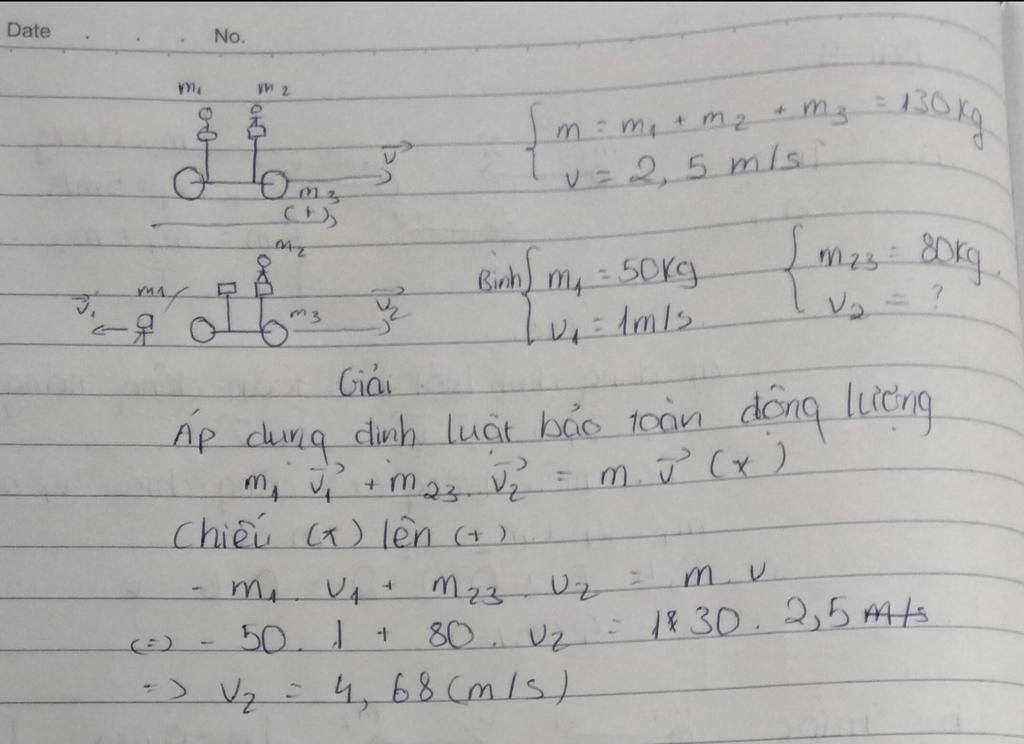 Date . . . No.
m₁ m₂
{ m = m₁ + m₂ + m₃ = 130kg
v = 2,5 m/s
v⃗
m₃
(+)
m₂
Bình { m₁ = 50kg { m₂₃ = 80kg
v₁ = 1m/s v₂ = ?
v⃗₁ m₁ m₃ v⃗₂
Giải
Áp dụng định luật bảo toàn động lượng
m₁ v⃗₁ + m₂₃ . v⃗₂ = m . v⃗ (*)
Chiếu (*) lên (+)
- m₁ . v₁ + m₂₃ . v₂ = m . v
(=) - 50 . 1 + 80 . v₂ = 130 . 2,5 m/s
=> v₂ = 4,68 (m/s)